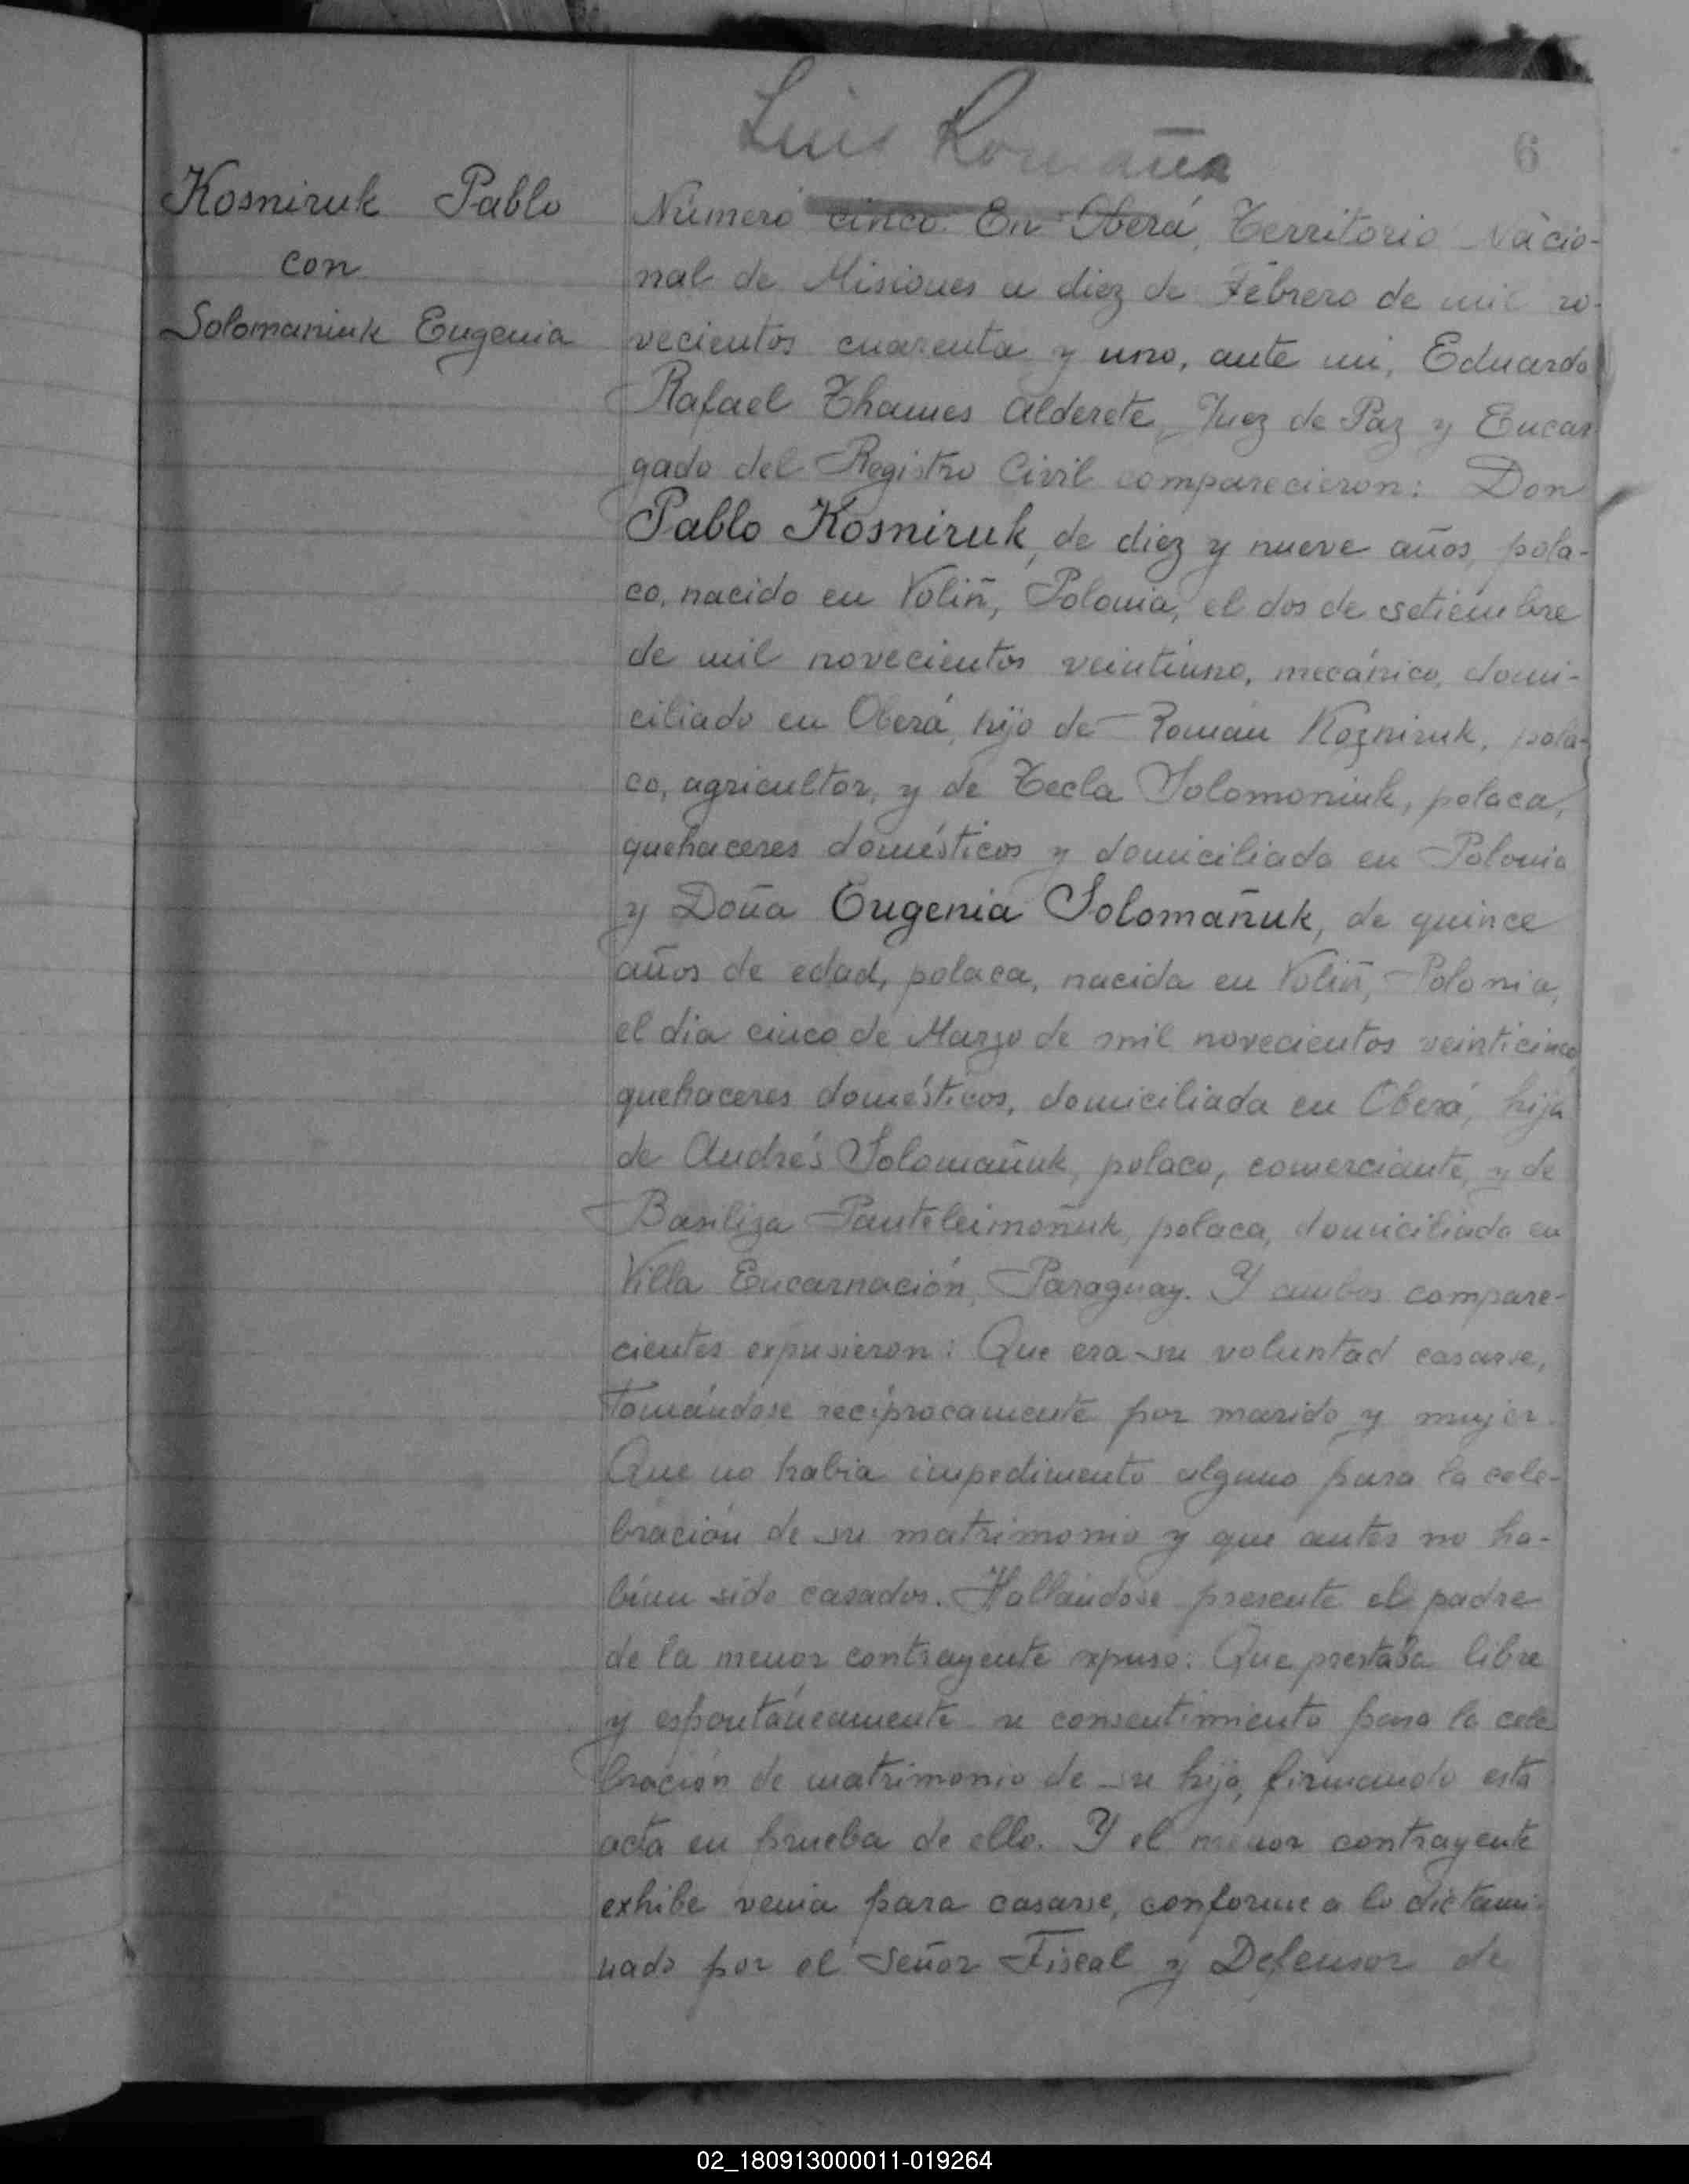 Luis Romaña
6
Kosniruk Pablo
con
Solomaniuk Eugenia
Número cinco. En Oberá, Territorio Nacio-
nal de Misiones a diez de Febrero de mil no-
vecientos cuarenta y uno, ante mi, Eduardo
Rafael Thames Alderete, Juez de Paz y Encar
gado del Registro Civil comparecieron: Don
Pablo Kosniruk, de diez y nueve años, pola-
co, nacido en Voliñ, Polonia, el dos de setiembre
de mil novecientos veintiuno, mecánico, domi-
ciliado en Oberá, hijo de Román Kozniruk, pola-
co, agricultor, y de Tecla Solomoniuk, polaca,
quehaceres domésticos y domiciliada en Polonia
y Doña Eugenia Solomañuk, de quince
años de edad, polaca, nacida en Voliñ, Polonia,
el dia cinco de Marzo de mil novecientos veinticinco,
quehaceres domésticos, domiciliada en Oberá, hija
de Andrés Solomañuk, polaco, comerciante, y de
Basiliza Panteleimoñuk, polaca, domiciliada en
Villa Encarnación, Paraguay. Y ambos compare-
cientes expusieron: Que era su voluntad casarse,
tomándose recíprocamente por marido y mujer.
Que no habia impedimento alguno para la cele-
bración de su matrimonio y que antes no ha-
bían sido casados. Hallándose presente el padre
de la menor contrayente expuso: Que prestaba libre
y espontáneamente su consentimiento para la cele
bración de matrimonio de su hija, firmando esta
acta en prueba de ello. Y el menor contrayente
exhibe venia para casarse, conforme a lo dictami-
nado por el Señor Fiscal y Defensor de
02_180913000011-019264